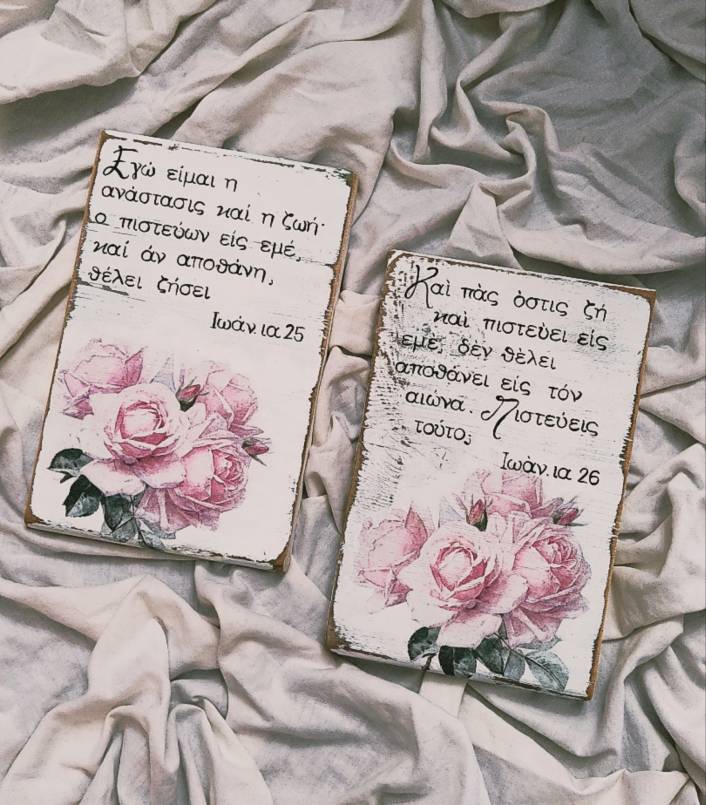 Εγώ είμαι η
ανάστασις καί η ζωή·
ο πιστεύων είς εμέ,
καί άν αποθάνη,
θέλει ζήσει
Ιωάν. ια 25
Καὶ πὰς ὁστις ζή
καὶ πιστεὑει είς
εμέ, δὲν θὲλει
αποθάνει είς τόν
αιώνα. Πιστεύεις
τούτο;
Ιωὰν. ια 26